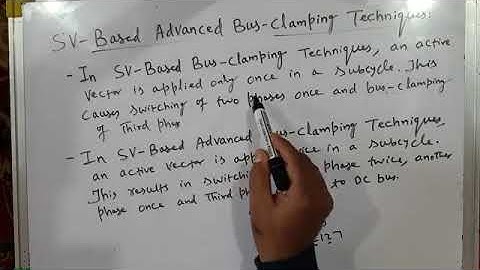 SV-Based Advanced Bus-Clamping Techniques:
- In SV-Based Bus-Clamping Techniques, an active
vector is applied only once in a subcycle. This
causes switching of two phases once and bus-clamping
of third
- In SV-Based Advanced Bus-Clamping Techniques,
an active vector is twice in a subcycle.
This results in phase twice, another
phase once and third to DC bus.